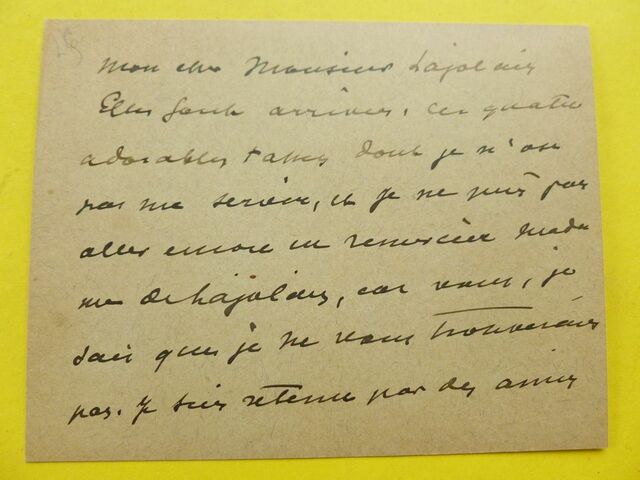 mon cher Monsieur Lajolais
Elles sont arrivées, ces quatre
adorables tasses dont je n'ose
pas me servir, et je ne puis pas
aller encore en remercier Mada
me de Lajolais, car vous, je
sais que je ne vous trouverais
pas. Je suis retenue par des amies